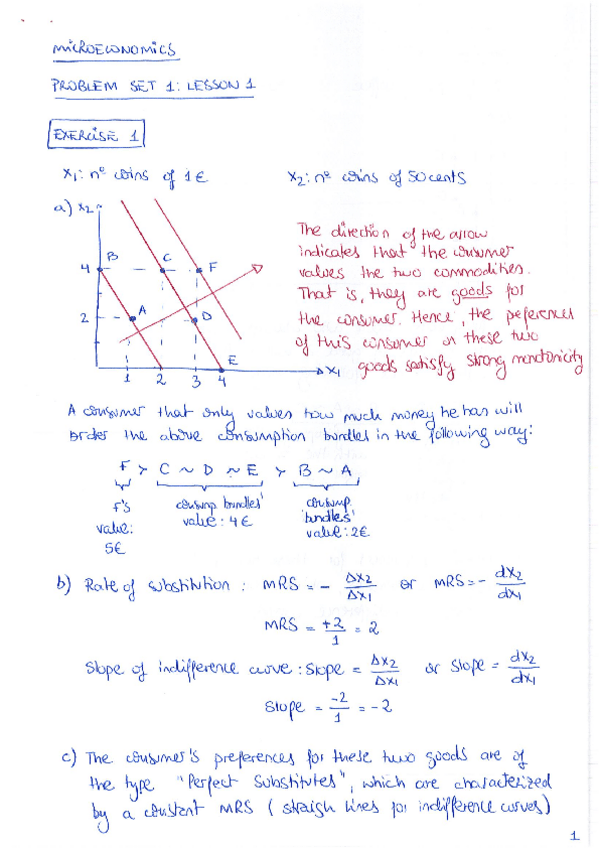 MICROECONOMICS
PROBLEM SET 1: LESSON 1
EXERCISE 1
X1: nº coins of 1€
X2: nº coins of 50 cents
a) X2
B
C
F
4
A
D
2
E
1 2 3 4
X1
The direction of the arrow
indicates that the consumer
values the two commodities.
That is, they are goods for
the consumer. Hence, the preferences
of this consumer on these two
goods satisfy strong monotonicity
A consumer that only values how much money he has will
order the above consumption bundles in the following way:
F ≻ C ~ D ~ E ≻ B ~ A
F's
value:
5€
consump bundles'
value: 4€
consump.
bundles'
value: 2€
b) Rate of substitution: MRS = - Δx2/Δx1 or MRS = - dx2/dx1
MRS = +2/1 = 2
Slope of indifference curve: Slope = Δx2/Δx1 or Slope = dx2/dx1
Slope = -2/1 = -2
c) The consumer's preferences for these two goods are of
the type "Perfect Substitutes", which are characterized
by a constant MRS (straigh lines for indifference curves)
1